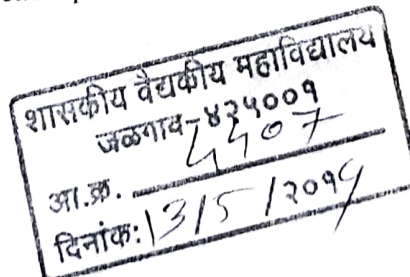 शासकीय वैद्यकीय महाविद्यालय
जळगाव-४२५००१
आ.क्र.
दिनांक: 13/5/२०१९